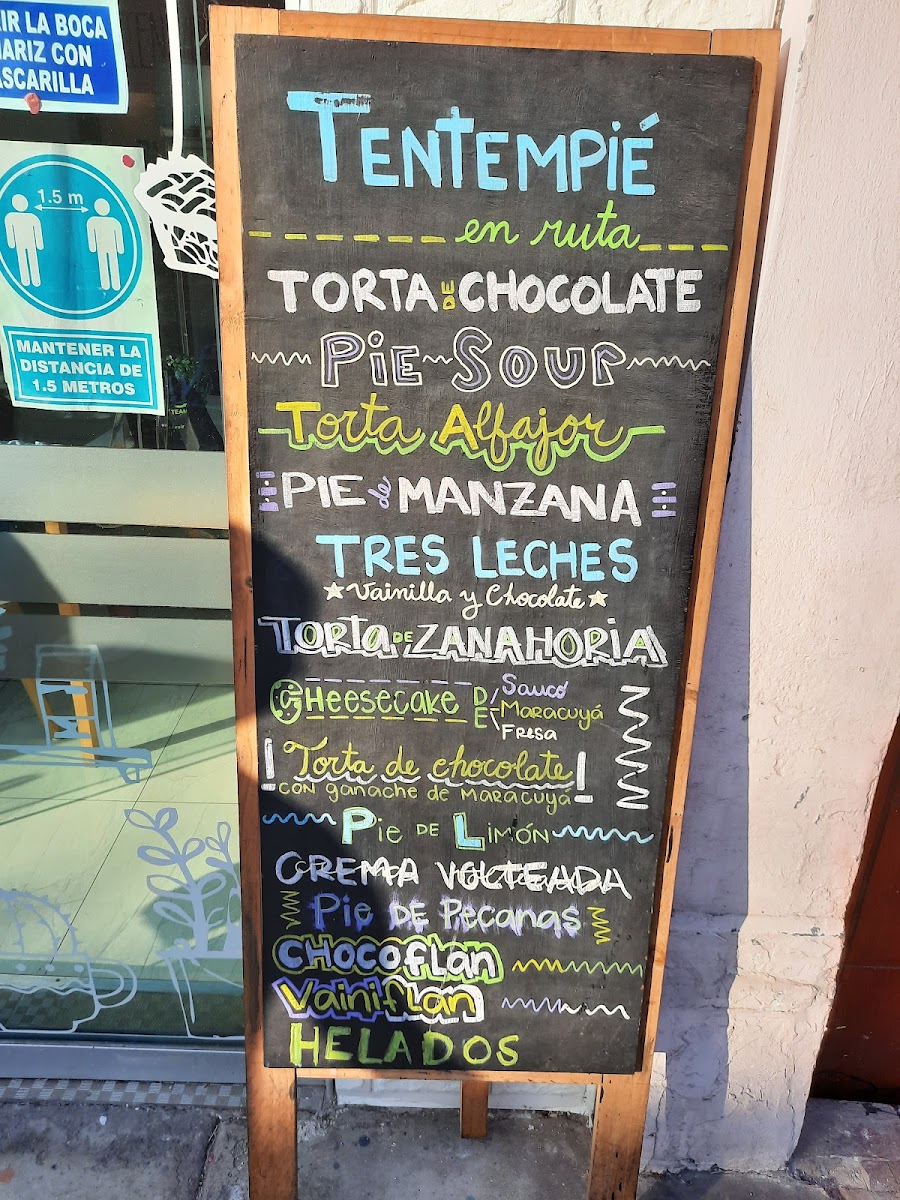 IR LA BOCA
NARIZ CON
ASCARILLA
1.5 m
MANTENER LA
DISTANCIA DE
1.5 METROS
TEAM
TENTEMPIÉ
en ruta
TORTA DE CHOCOLATE
Pie Sour
Torta Alfajor
PIE de MANZANA
TRES LECHES
Vainilla y Chocolate
TORTA DE ZANAHORIA
CHeesecake DE
Saucó
Maracuyá
Fresa
¡Torta de chocolate!
con ganache de Maracuyá
Pie DE Limón
CREMA VOLTEADA
Pie DE Pecanas
CHOCOFLAN
Vainiflan
HELADOS